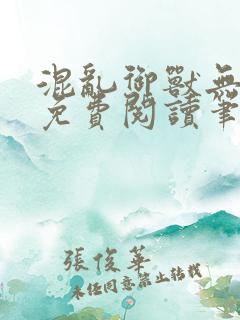 混亂御獸無
免費閱讀筆
張俊華
未经同意禁止转载